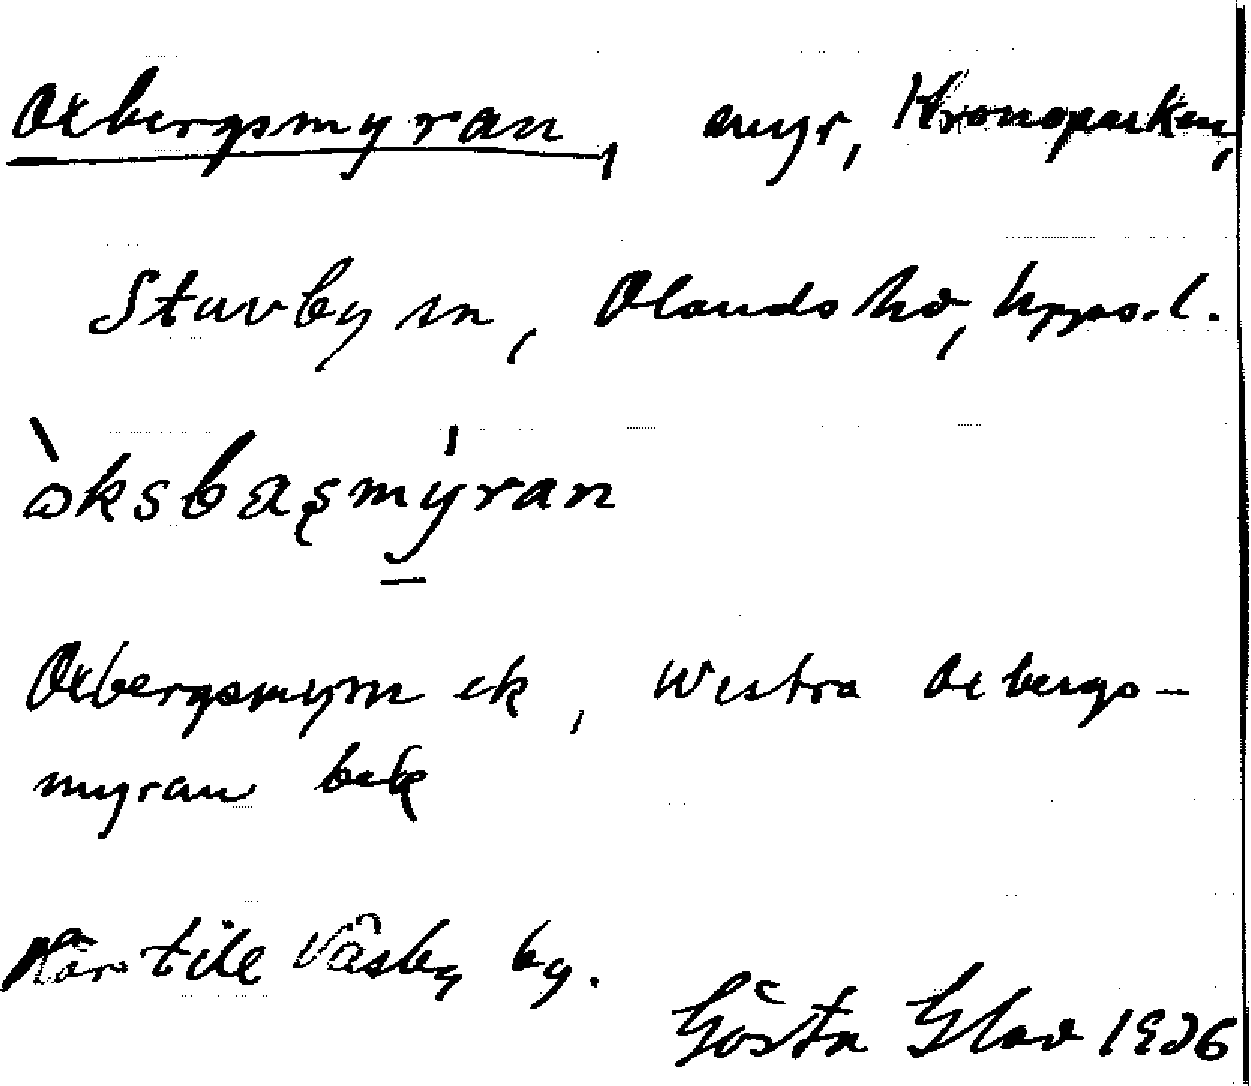 Oxbergsmyran, myr, Kronoparken,
Stavby sn, Olands hd, Upps. l.
òksbaşmýran
Oxbergsmyrn ek, Westra Oxbergs-
myran bek
Hör till Våsby by.
Gösta Glad 1936